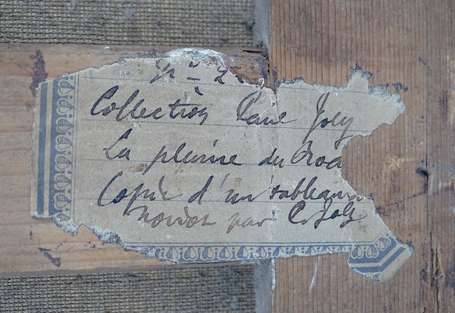 Nº 2
Collection Paul Joly
La plaine du
Copie d'un tableau
par C. Joly